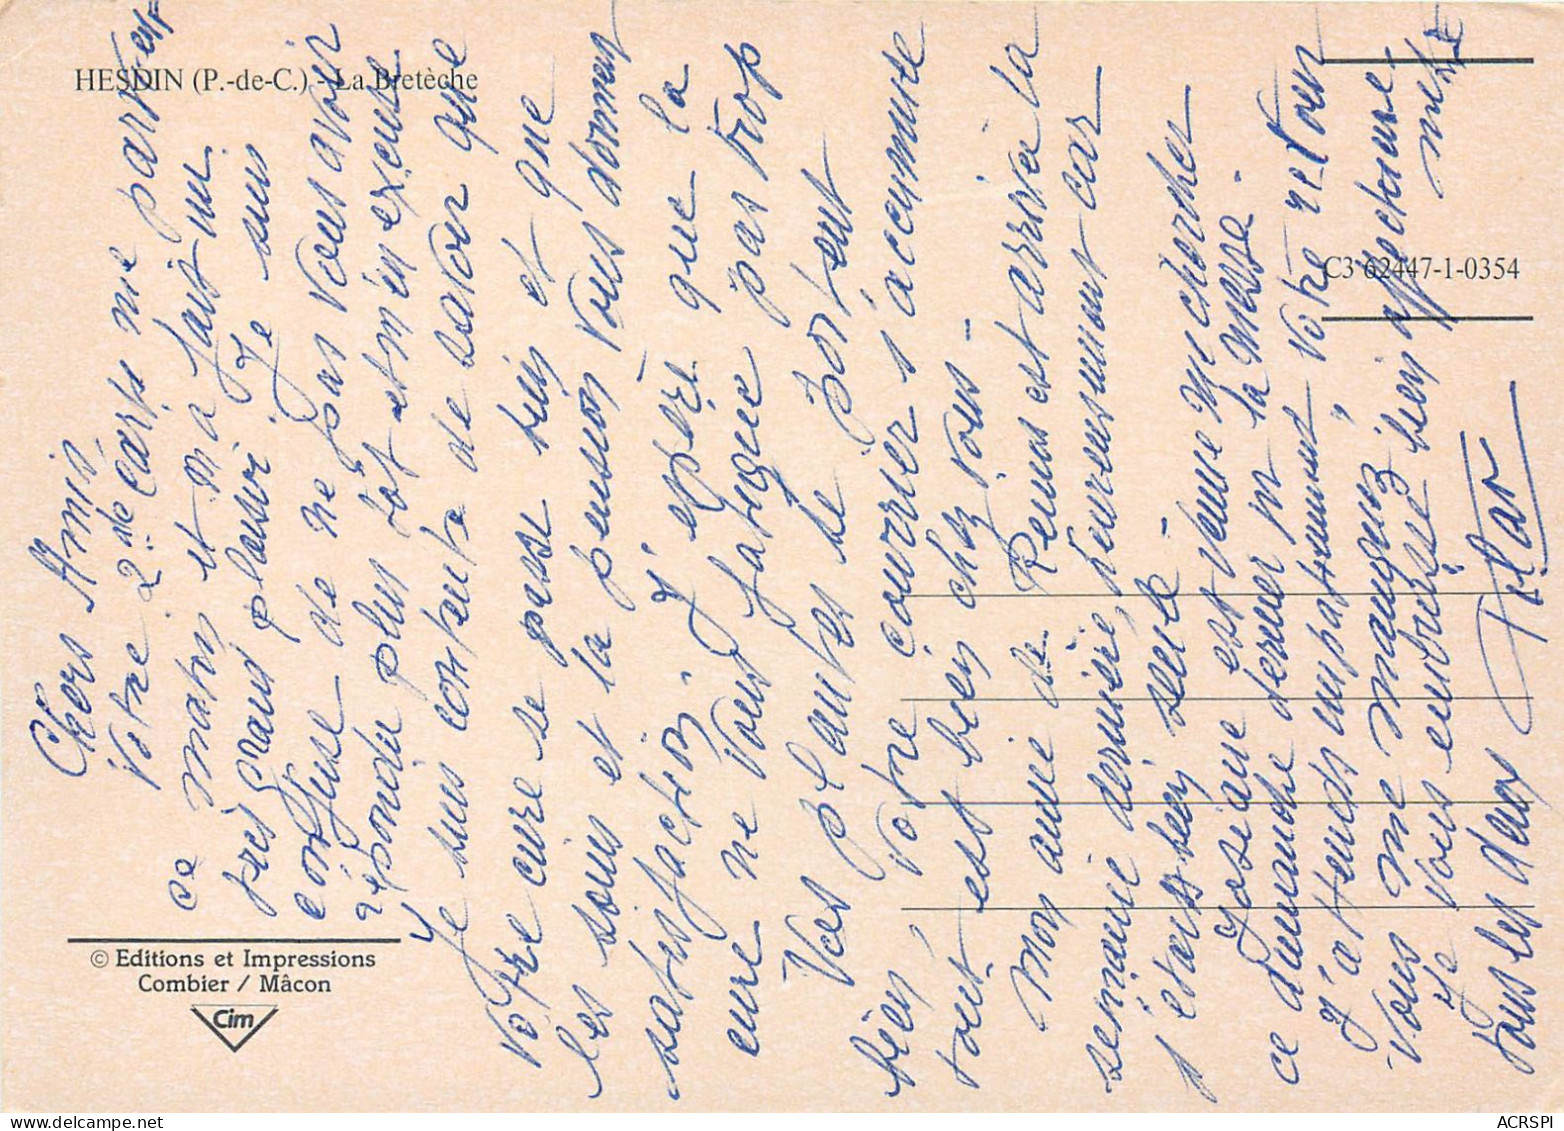 HESDIN (P.-de-C.) - La Bretèche
C3 62447-1-0354
© Editions et Impressions
Combier / Mâcon
Cim
Chers Amis
Votre 2de Carte me parvient
ce matin et m'a fait un
très grand plaisir. Je suis
confuse de ne pas vous avoir
répondu plus tôt et m'en excuse
Je suis contente de savoir que
votre cure se passe bien et que
les soins et la pension vous donnent
satisfaction. J'espère que la
cure ne vous fatigue pas trop
Vos plantes se portent
bien, votre courrier s'accumule
tout est bien chez vous -
Mon amie de Reims est arrivée la
semaine dernière, heureusement car
j'étais bien seule -
Josiane est venue me chercher
ce dimanche dernier pr la messe.
J'attends impatiemment votre retour
Vous me manquez
Je vous embrasse bien affectueusement
tous les deux
Pilar
ACRSPI